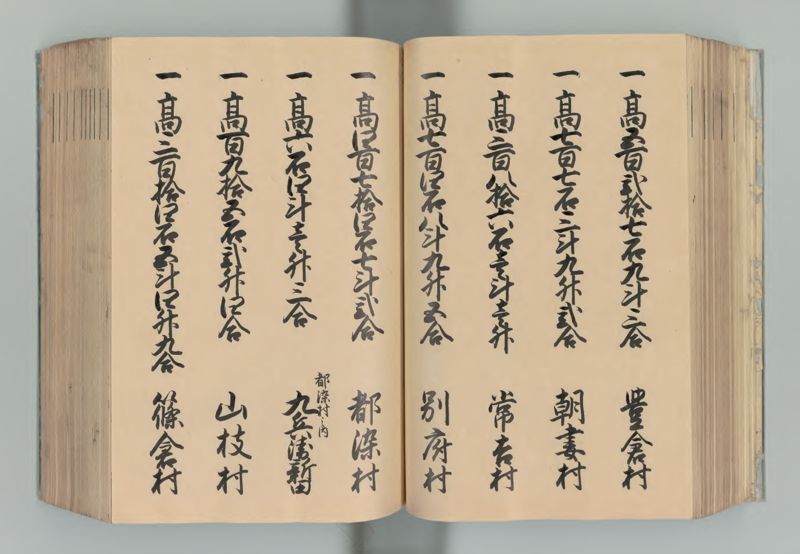 一 高五百弐拾七石九斗三合 豊倉村
一 高七百七石三斗九升弐合 朝妻村
一 高三百八拾六石壱斗壱升 常吉村
一 高七百四石八斗九升五合 別府村
一 高四百七拾四石七斗弐合 都染村
一 高六石四斗壱升三合 都染村之内 九兵衛新田
一 高百九拾五石弐升四合 山枝村
一 高三百拾四石五斗四升九合 篠倉村